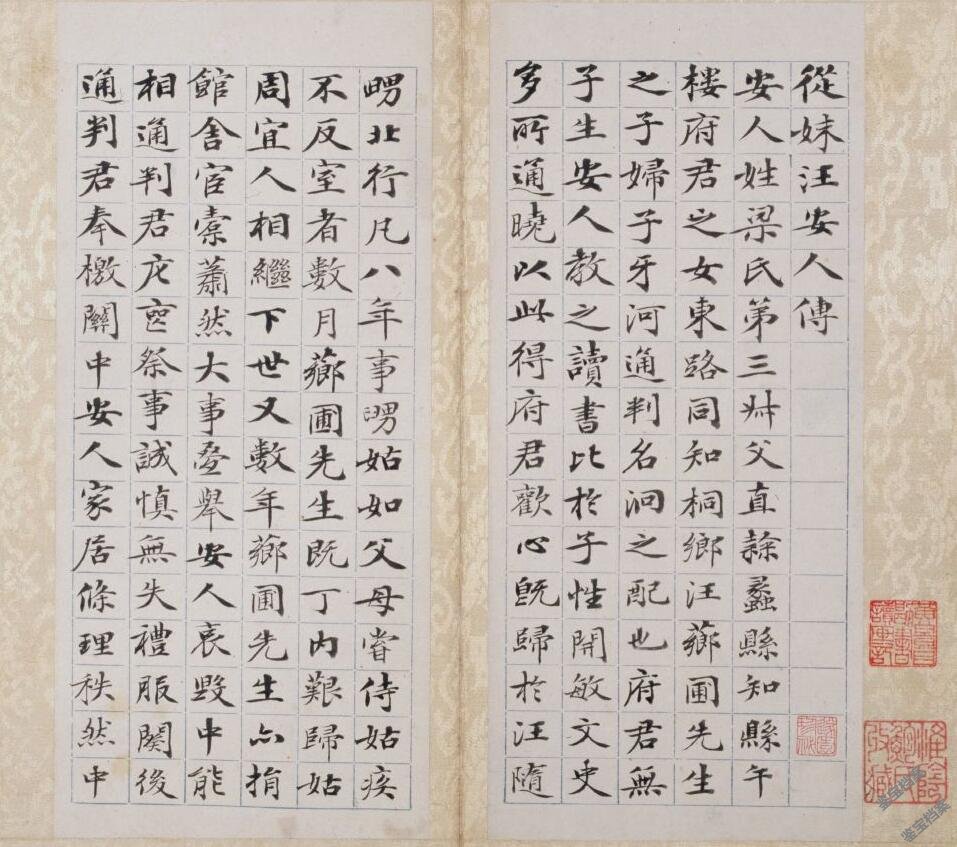 從妹汪安人傳
安人姓梁氏第三叔父直隸蠡縣知縣午
樓府君之女東路同知桐鄉汪薌圃先生
之子婦子牙河通判名泂之配也府君無
子生安人教之讀書比於子性開敏文史
多所通曉以此得府君歡心既歸於汪隨
舅北行凡八年事舅姑如父母嘗侍姑疾
不反室者數月薌圃先生既丁內艱歸姑
周宜人相繼下世又數年薌圃先生亦捐
館舍宦橐蕭然大事疊舉安人哀毀中能
相通判君庀喪祭事誠慎無失禮服闋後
通判君奉檄關中安人家居條理秩然中
鉴宝档案
鉴宝档案